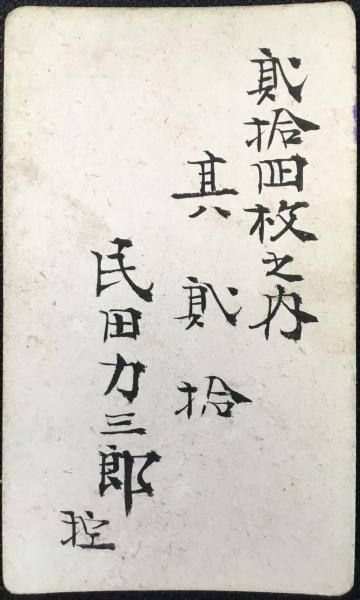 貳拾四枚之内
其貳拾
民田力三郎
控